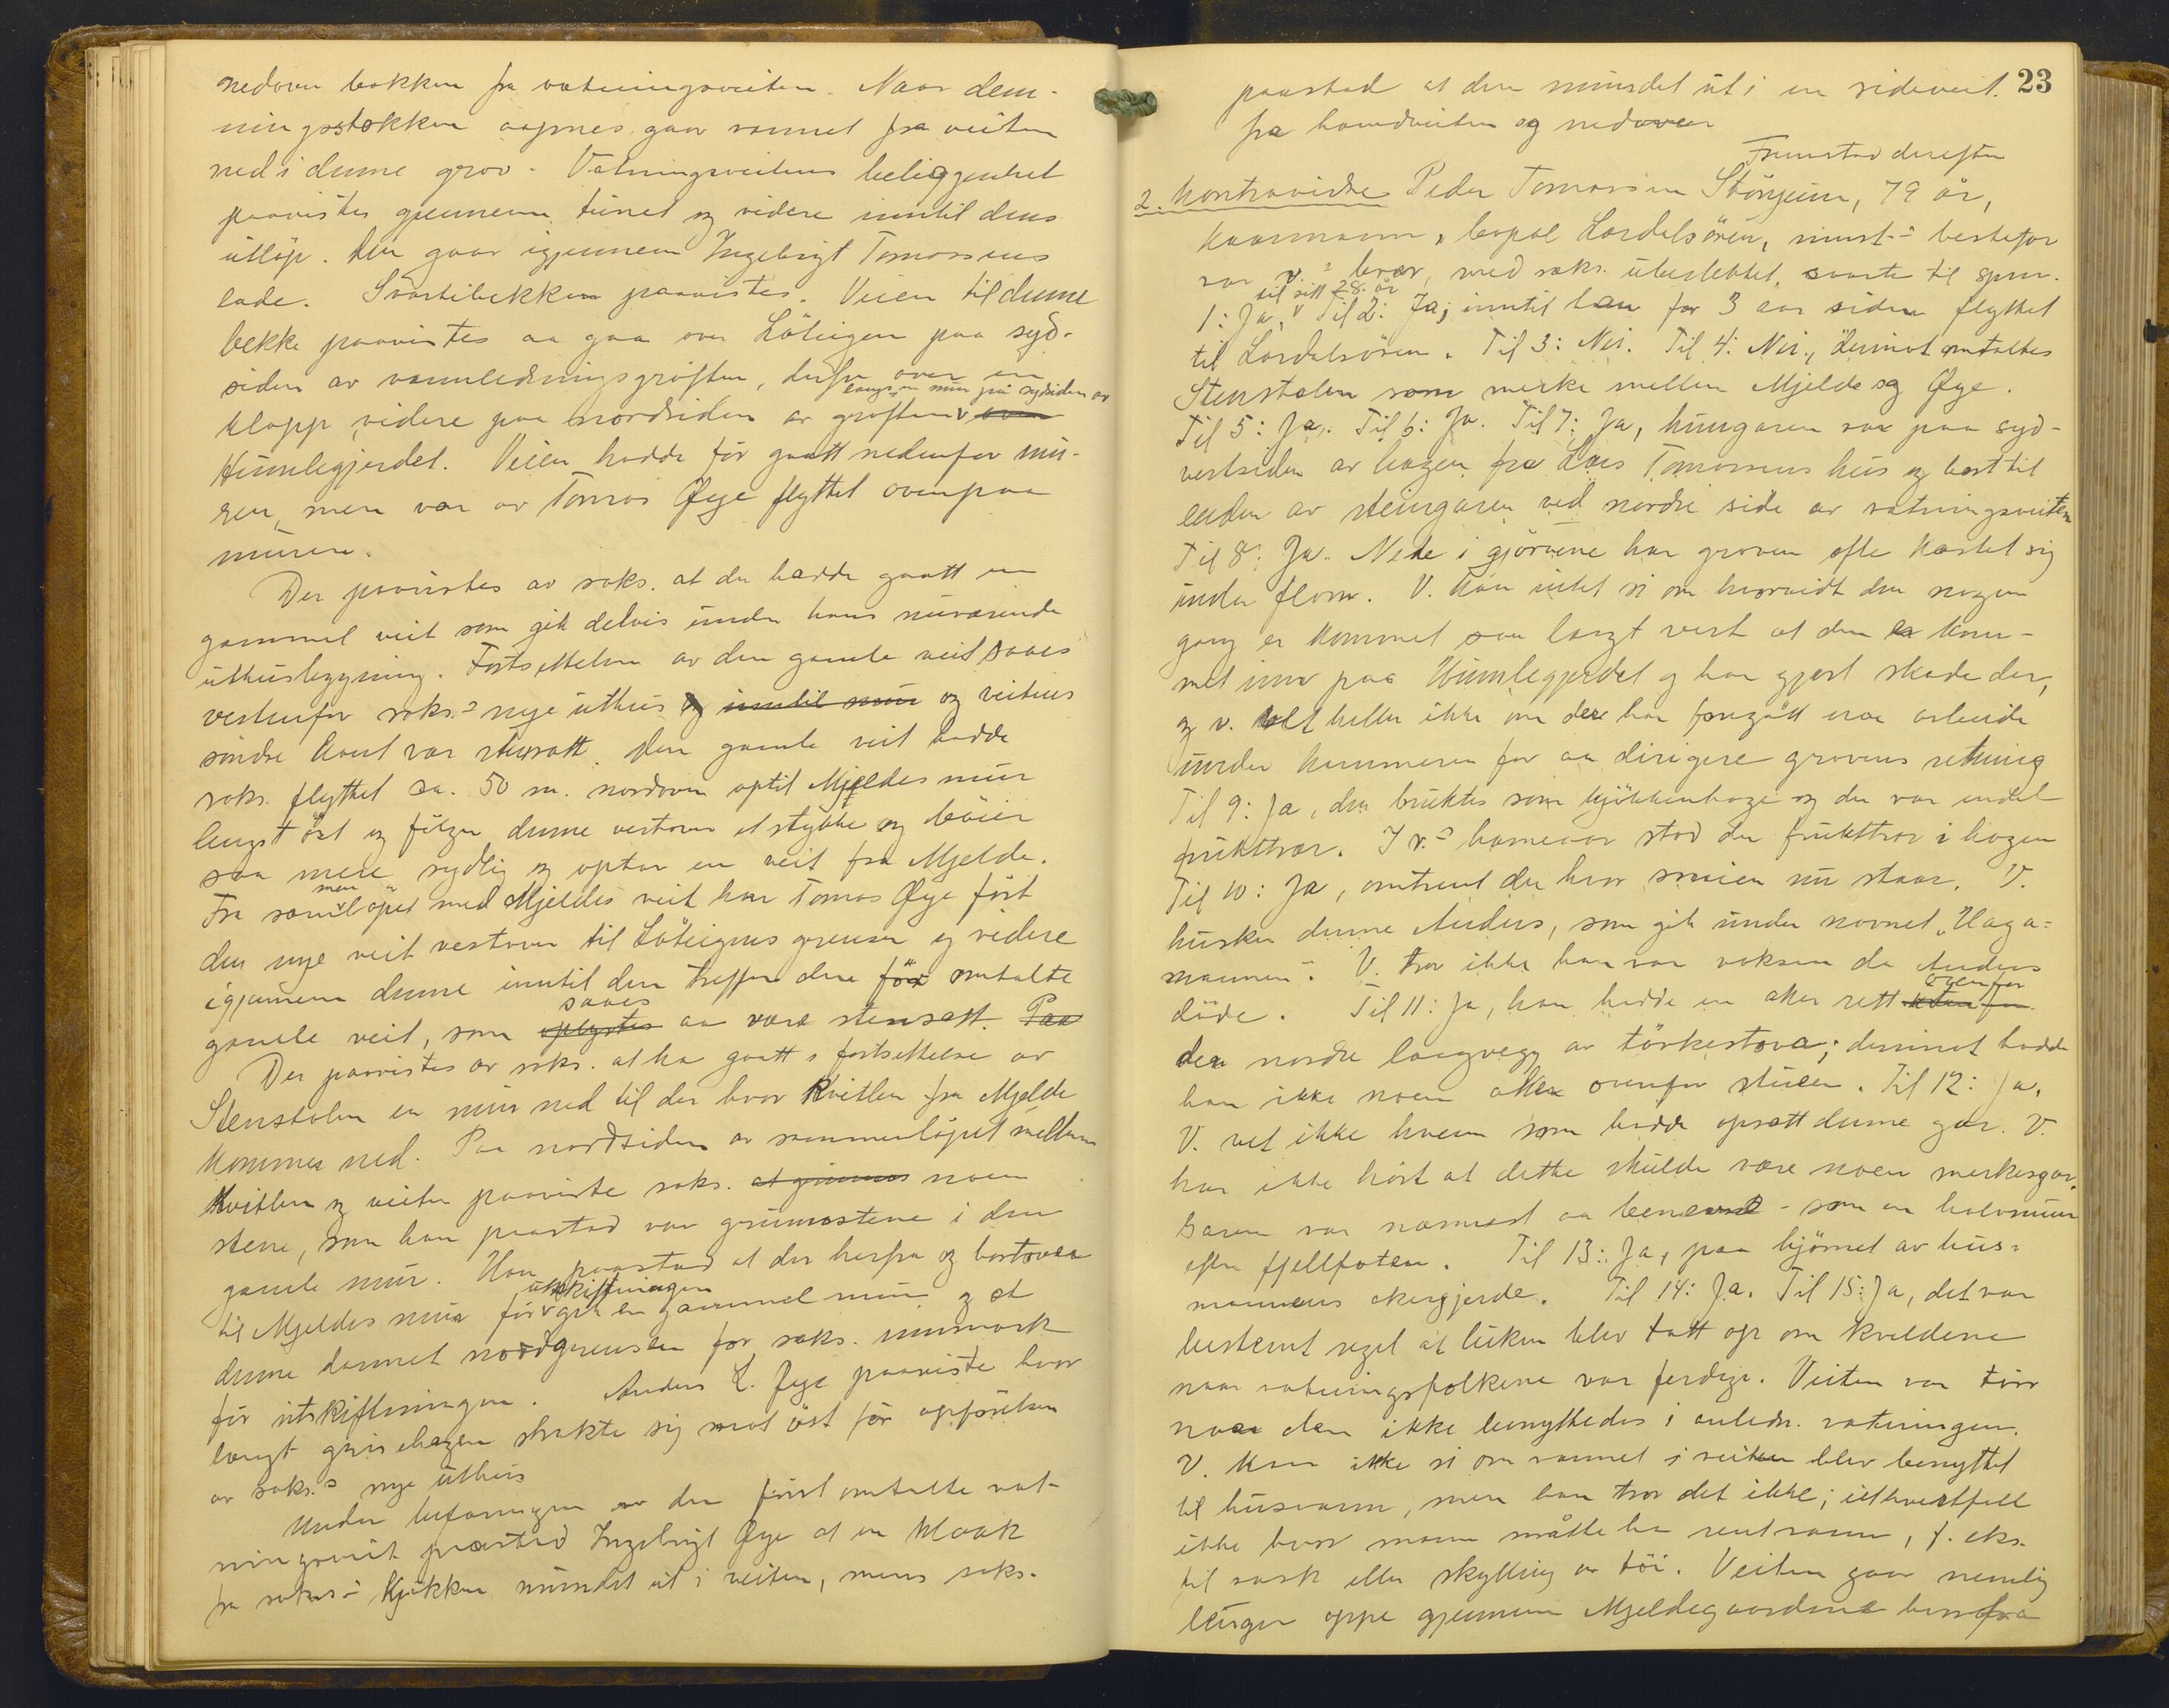 nedover bakken fra vatningsveiten. Naar dem-
ningsstokken aapnes, gaar vannet fra veiten
ned i denne grov. Vatningsveitens beliggenhet
paavistes gjennem tunet og videre inntil dens
utløp. Den gaar igjennem Ingebrigt Tomassens
lade. Svartibekken paavistes. Veien til denne
bekk paavistes aa gaa over Løteigen paa syd-
siden av vannledningsgrøften, derfra over en
klopp videre paa nordsiden av grøften langs en mur paa sydsiden av
Humlegjerdet. Veien hadde før gaatt nedenfor mu-
ren, men var av Tomas Øye flyttet ovenpaa
muren.
Der paavistes av saks. at der hadde gaatt en
gammel veit som gik delvis under hans nuværende
uthusbygning. Fortsettelsen av den gamle veit saaes
vestenfor saks.s nye uthus og inntil mur og veitens
søndre kant var stensatt. Den gamle veit hadde
saks. flyttet ca. 50 m. nordover optil Mjeldes mur
lengst øst og følger denne vestover et stykke og bøier
saa mere sydlig og optar en veit fra Mjelde.
Fra sammenløpet med Mjeldes veit har Tomas Øye ført
den nye veit vestover til Løteigens grense og videre
igjennem denne inntil den treffer den før omtalte
gamle veit, som oplystes saaes aa være stensatt. Paa
Der paavistes av saks. at ha gaatt i fortsettelse av
Stenstolen en mur ned til der hvor Kvitlen fra Mjelde
kommer ned. Paa nordsiden av sammenløpet mellem
Kvitlen og veiten paaviste saks. at grunnes noen
stene, som han paastod var grunnstene i den
gamle mur. Han paastod at der herfra og bortover
til Mjeldes mur før utskiftningen gik en gammel mur og at
denne dannet nordgrensen for saks. innmark
før utskiftningen. Anders L. Øye paaviste hvor
langt grisehagen strakte sig mot øst før opførelsen
av saks.s nye uthus
Under befaringen av den først omtalte vat-
ningsveit paastod Ingebrigt Øye at en kloak
fra saks.s kjøkken mundet ut i veiten, mens saks.
23
paastod at den mundet ut i en sideveit
fra hovedveiten og nedover
Fremstod derefter
2. Kontravidne Peder Tomassen Stønjum, 79 år,
kaarmann, bopæl Lærdalsøren, innst.s bestefar
var v.s bror, med saks. ubeslektet, svarte til spm.
1: Ja, til sitt 28. år Til 2: Ja; inntil han for 3 aar siden flyttet
til Lærdalsøren. Til 3: Nei. Til 4: Nei, derimot omtaltes
Stenstolen som merke mellem Mjelde og Øye.
Til 5: Ja. Til 6: Ja. Til 7: Ja, hungaren var paa syd-
vestsiden av hagen fra Lars Tomassens hus og bort til
enden av steingaren ved nordre side av vatningsveiten
Til 8: Ja. Nede i gjørvene har groven ofte kastet sig
under flom. V. kan intet si om hvorvidt den nogen
gang er kommet saa langt vest at den er kom-
met inn paa Humlegjerdet og har gjort skade der,
og v. vet heller ikke om der har foregått noe arbeide
under hammeren for aa dirigere grovens retning
Til 9: Ja, den bruktes som kjøkkenhage og der var endel
frukttrær. I v.s barneaar stod der frukttrær i hagen
Til 10: Ja, omtrent der hvor smien nu staar. V.
husker denne Anders, som gik under navnet „Haga-
mannen". V. tror ikke han var voksen da Anders
døde. Til 11: Ja, han hadde en aker rett uten for ovenfor
den nordre langvegg av tørkestova; derimot hadde
han ikke noen aker ovenfor stuen. Til 12: Ja.
V. vet ikke hvem som hadde opsatt denne gar. V.
har ikke hørt at dette skulde være noen merkesgar.
Garen var nærmest aa benevne som en halvmur
efter fjellfoten. Til 13: Ja, paa hjørnet av hus-
mannens akergjerde. Til 14: Ja. Til 15: Ja, det var
bestemt regel at luken blev tatt op om kveldene
naar vatningsfolkene var ferdige. Veiten var tørr
naar den ikke benyttedes i anledn. vatningen.
V. kan ikke si om vannet i veiten blev benyttet
til husvann, men han tror det ikke; iethvertfall
ikke hvor mann måtte ha rent vann, f. eks.
til vask eller skylling av tøi. Veiten gaar nemlig
lenger oppe gjennem Mjeldegaardene hvorfra